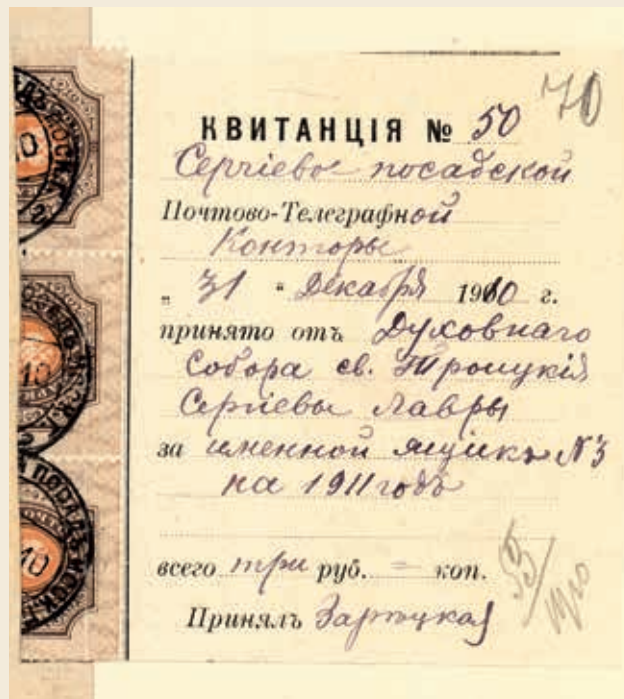 70
КВИТАНЦІЯ № 50
Сергіево посадской
Почтово-Телеграфной
Конторы
„ 31 “ Декабря 1910 г.
принято отъ Духовнаго
Собора св. Троицкія
Сергіевы Лавры
за именной ящикъ №3
на 1911 годъ
всего три руб. = коп.
Принялъ